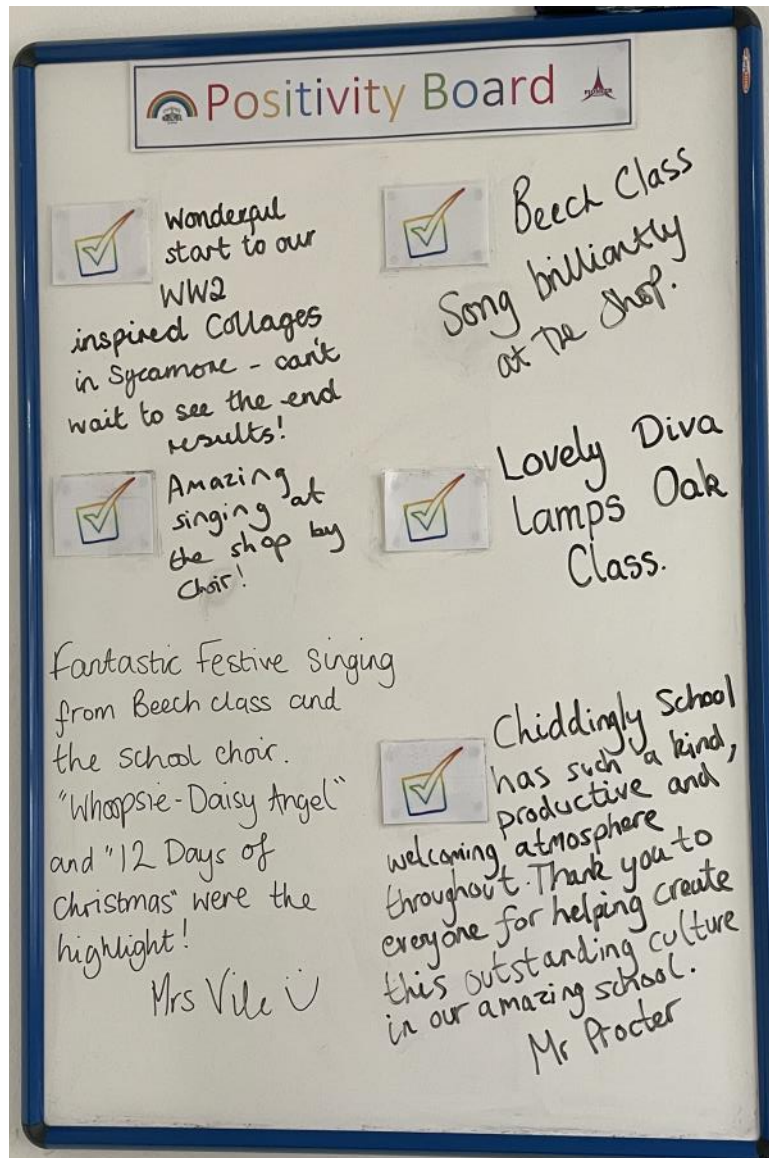 Positivity Board
Wonderful
start to our
WW2
inspired Collages
in Sycamore - can't
wait to see the end
results!
Beech Class
Song brilliantly
at the shop.
Amazing
singing at
the shop by
Choir!
Lovely Diva
Lamps Oak
Class.
Fantastic Festive Singing
from Beech class and
the school choir.
"Whoopsie-Daisy Angel"
and "12 Days of
Christmas" were the
highlight!
Mrs Vile
Chiddingly School
has such a kind,
productive and
welcoming atmosphere
throughout. Thank you to
everyone for helping create
this outstanding culture
in our amazing school.
Mr Procter